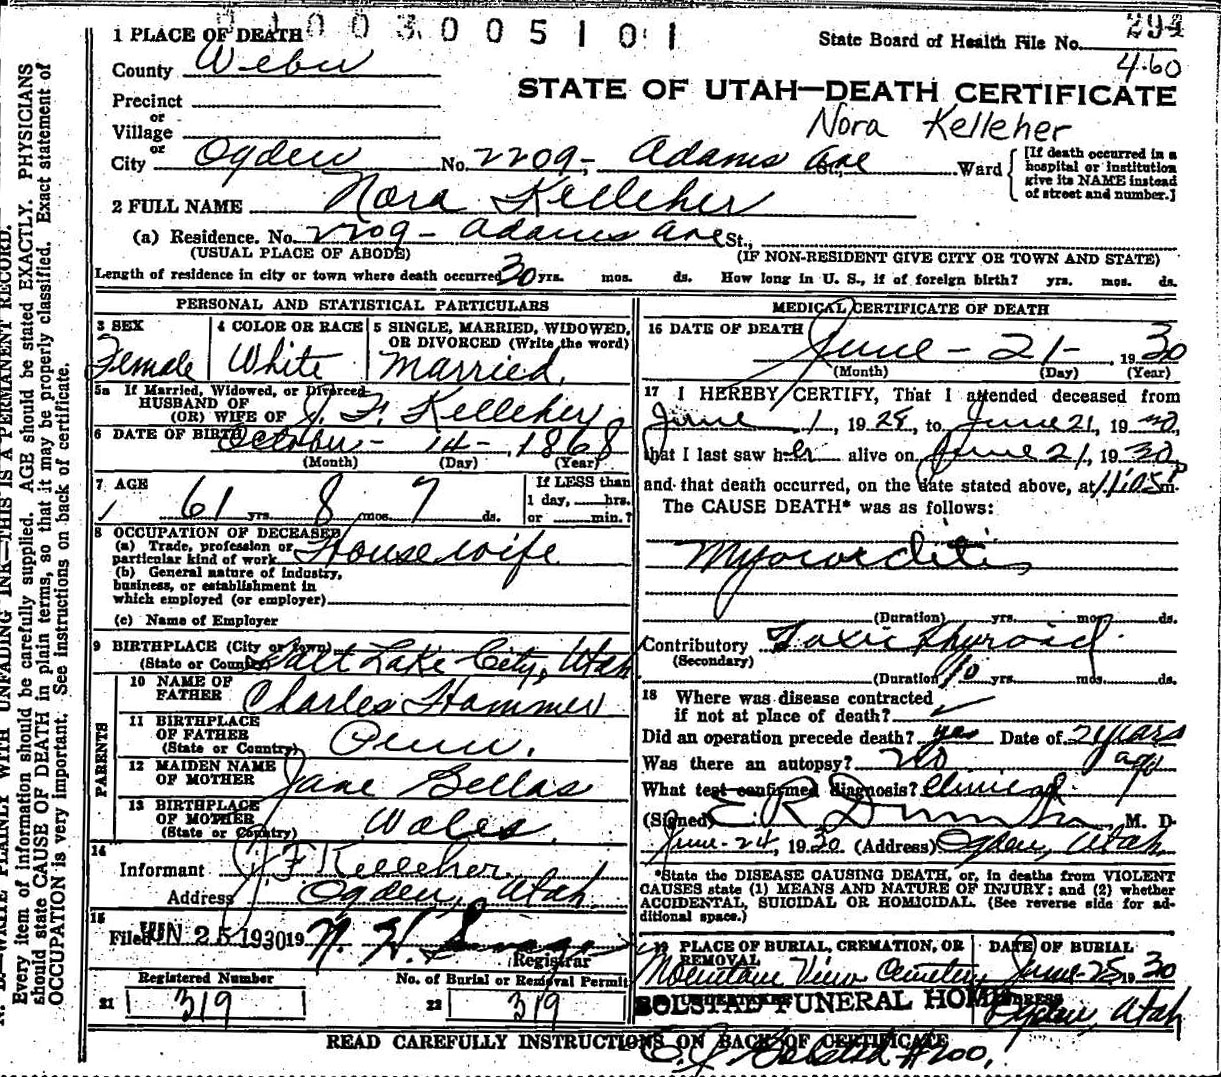 1 PLACE OF DEATH
003005101
State Board of Health File No. 294
County Weber
4.60
Precinct
STATE OF UTAH—DEATH CERTIFICATE
or
Village
Nora Kelleher
or
City Ogden No. 2209- Adams Ave St., Ward
[If death occurred in a hospital or institution give its NAME instead of street and number.]
2 FULL NAME Nora Kelleher
(a) Residence. No. 2209- Adams Ave St.,
(USUAL PLACE OF ABODE) (IF NON-RESIDENT GIVE CITY OR TOWN AND STATE)
Length of residence in city or town where death occurred 30 yrs. mos. ds. How long in U. S., if of foreign birth? yrs. mos. ds.
PERSONAL AND STATISTICAL PARTICULARS
3 SEX
Female
4 COLOR OR RACE
White
5 SINGLE, MARRIED, WIDOWED, OR DIVORCED (Write the word)
Married,
5a If Married, Widowed, or Divorced
HUSBAND OF
(OR) WIFE OF J. F. Kelleher
6 DATE OF BIRTH October - 14 -, 1868
(Month) (Day) (Year)
7 AGE
61 yrs. 8 mos. 7 ds.
If LESS than
1 day, hrs.
or min.?
8 OCCUPATION OF DECEASED
(a) Trade, profession or
particular kind of work Housewife
(b) General nature of industry,
business, or establishment in
which employed (or employer)
(c) Name of Employer
9 BIRTHPLACE (City or town)
(State or Country) Salt Lake City, Utah
PARENTS
10 NAME OF
FATHER Charles Hammer
11 BIRTHPLACE
OF FATHER
(State or Country) Penn.
12 MAIDEN NAME
OF MOTHER Jane Bellas
13 BIRTHPLACE
OF MOTHER
(State or Country) Wales
14
Informant J F Kelleher
Address Ogden, Utah
15
Filed JUN 25 1930 19
Registrar
Registered Number
21 319
No. of Burial or Removal Permit
22 319
MEDICAL CERTIFICATE OF DEATH
16 DATE OF DEATH
June - 21 -, 1930
(Month) (Day) (Year)
17 I HEREBY CERTIFY, That I attended deceased from
June 1, 1928, to June 21, 1930,
that I last saw her alive on June 21, 1930,
and that death occurred, on the date stated above, at 11:05 P m.
The CAUSE DEATH* was as follows:
Myocarditis
(Duration) yrs. mos. ds.
Contributory Toxic thyroid
(Secondary)
(Duration) 10 yrs. mos. ds.
18 Where was disease contracted
if not at place of death?
Did an operation precede death? yes Date of 2 years
ago
Was there an autopsy? no
What test confirmed diagnosis? Clinical
(Signed) M. D.
June-24, 1930 (Address) Ogden, Utah
*State the DISEASE CAUSING DEATH, or, in deaths from VIOLENT
CAUSES state (1) MEANS AND NATURE OF INJURY; and (2) whether
ACCIDENTAL, SUICIDAL OR HOMICIDAL. (See reverse side for ad-
ditional space.)
19 PLACE OF BURIAL, CREMATION, OR
REMOVAL
Mountain View Cemetery
DATE OF BURIAL
June-25, 1930
BOLSTAD FUNERAL HOME
ADDRESS
Ogden, Utah
READ CAREFULLY INSTRUCTIONS ON BACK OF CERTIFICATE
N. B.—WRITE PLAINLY WITH UNFADING INK—THIS IS A PERMANENT RECORD.
Every item of information should be carefully supplied. AGE should be stated EXACTLY. PHYSICIANS
should state CAUSE OF DEATH in plain terms, so that it may be properly classified. Exact statement of
OCCUPATION is very important. See Instructions on back of certificate.